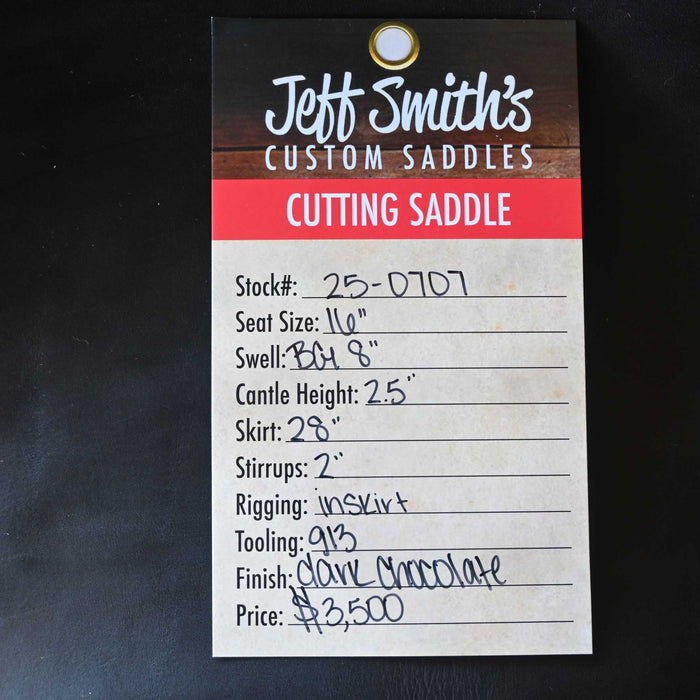 Jeff Smith's
CUSTOM SADDLES
CUTTING SADDLE
Stock#: 25-0707
Seat Size: 16"
Swell: BCH 8"
Cantle Height: 2.5"
Skirt: 28"
Stirrups: 2"
Rigging: inskirt
Tooling: 913
Finish: dark chocolate
Price: $3,500